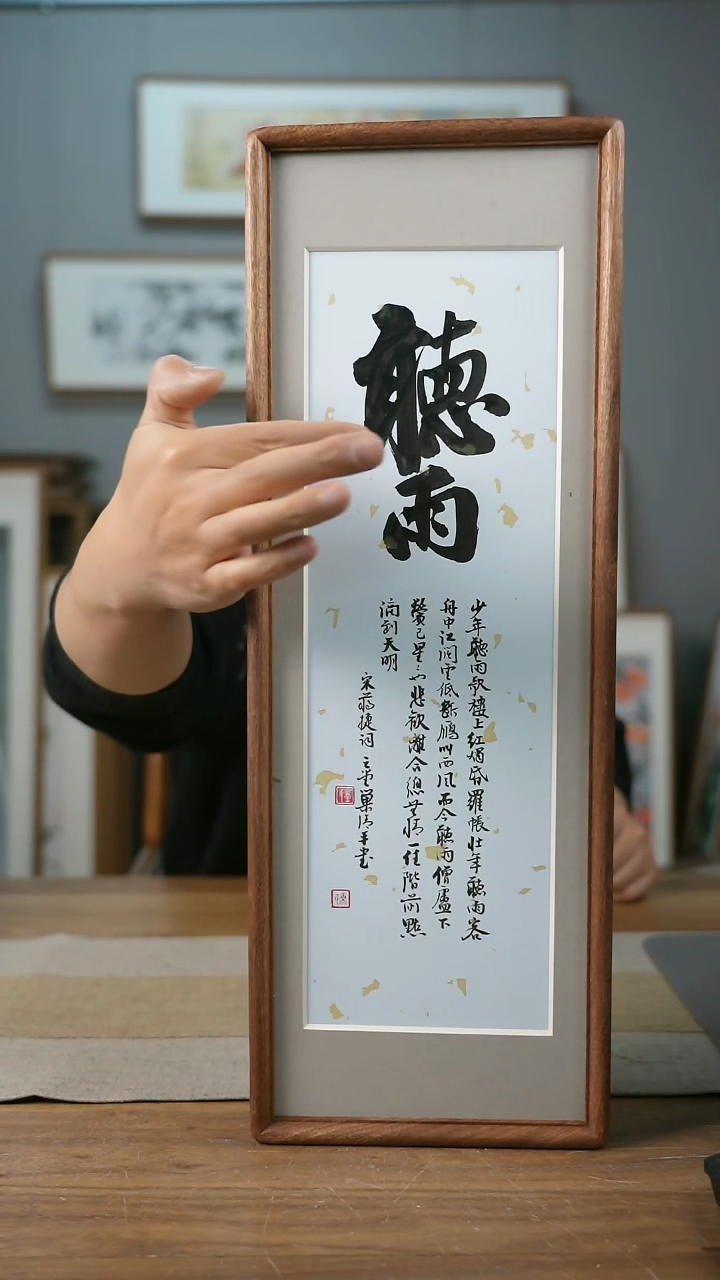 聽雨
少年聽雨歌樓上紅燭昏羅帳壯年聽雨客
舟中江闊雲低斷鴈叫西風而今聽雨僧廬下
鬢已星星也悲歡離合總無情一任階前點
滴到天明
宋蔣捷詞